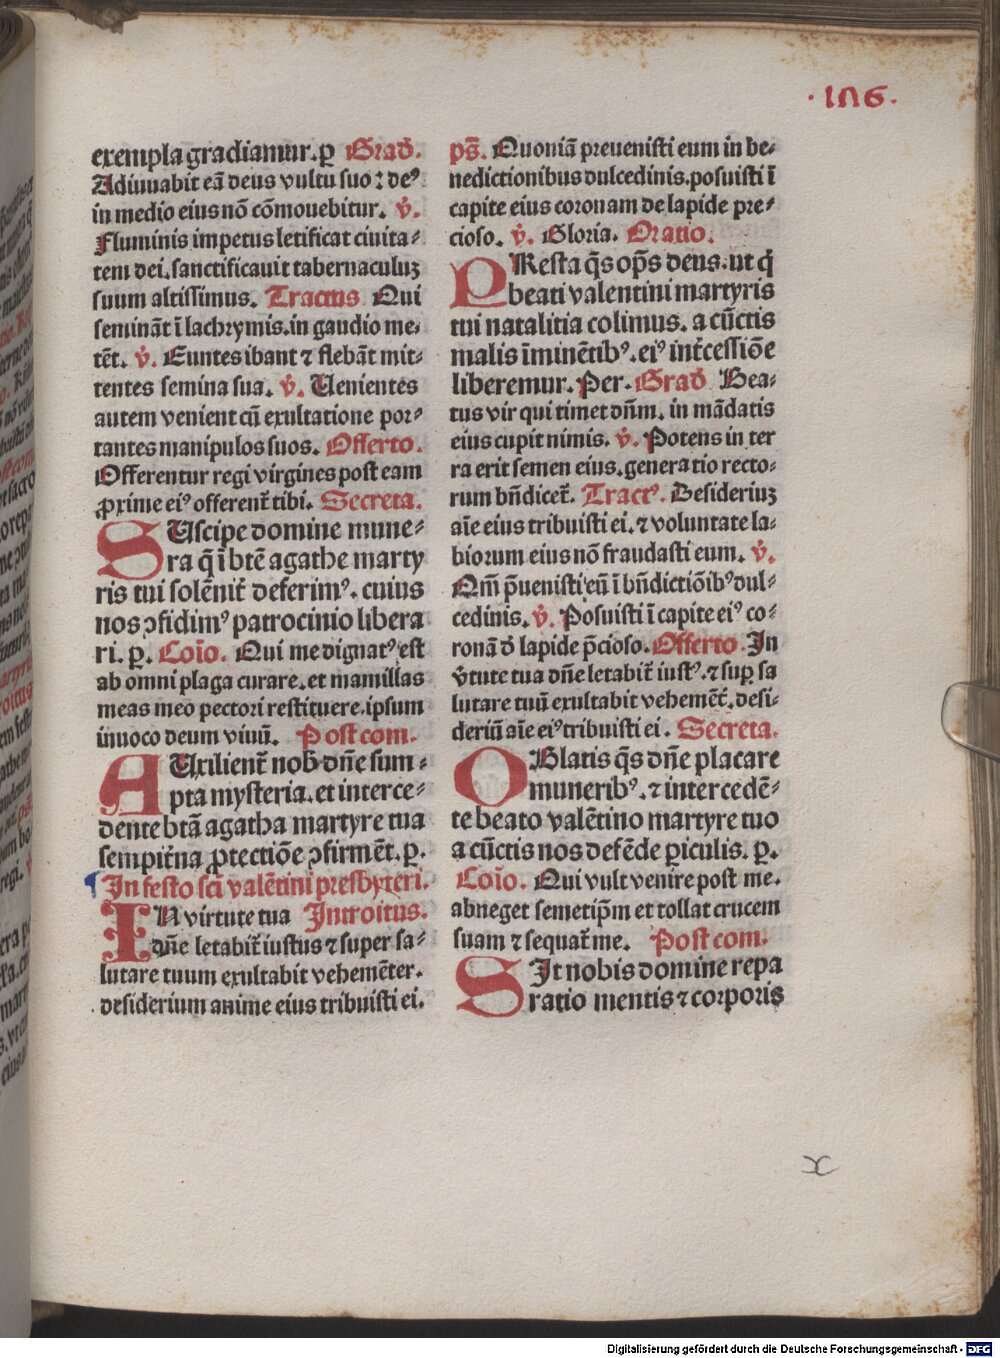 ·106·
exempla gradiamur. ꝑ Grad̕.
Adiuuabit eã deus vultu suo ⁊ deꝰ
in medio eius nõ cõmouebitur. v̕.
Fluminis impetus letificat ciuita⸗
tem dei. sanctificauit tabernaculuꝫ
suum altissimus. Tractus Qui
seminãt ĩ lachrymis. in gaudio me⸗
tẽt. v̕. Euntes ibant ⁊ flebãt mit⸗
tentes semina sua. v̕. Uenientes
autem venient cũ exultatione por⸗
tantes manipulos suos. Offerto.
Offerentur regi virgines post eam
ꝓxime eiꝰ offerent̃ tibi. Secreta.
SUscipe domine mune⸗
ra q̃ ĩ btẽ agathe marty
ris tui solẽnit̃ deferimꝰ. cuius
nos ꝯfidimꝰ patrocinio libera
ri. ꝑ. Coĩo. Qui me dignatꝰ est
ab omni plaga curare. et mamillas
meas meo pectori restituere. ipsum
inuoco deum viuũ. Post com.
AUxilient̃ nob̕ dñe sum⸗
pta mysteria. et interce⸗
dente btã agatha martyre tua
sempit̃na ꝓtectiõe ꝯfirmẽt. ꝑ.
In festo sci̅ valẽtini presbyteri.
IN virtute tua Introitus.
dñe letabit̃ iustus ⁊ super sa⸗
lutare tuum exultabit vehemẽter.
desiderium anime eius tribuisti ei.
ps̃. Quoniã preuenisti eum in be⸗
nedictionibus dulcedinis. posuisti ĩ
capite eius coronam de lapide pre⸗
cioso. v̕. Gloria. Oratio.
PResta q̃s op̃s deus. ut q̇
beati valentini martyris
tui natalitia colimus. a cũctis
malis ĩminẽtibꝰ. eiꝰ int̃cessiõe
liberemur. Per. Grad̕ Bea⸗
tus vir qui timet dñm. in mãdatis
eius cupit nimis. v̕. Potens in ter
ra erit semen eius. genera tio recto⸗
rum bñdicet̃. Tractꝰ. Desideriuꝫ
aĩe eius tribuisti ei. ⁊ voluntate la⸗
biorum eius nõ fraudasti eum. v̕.
Qm̃ p̃uenisti eũ ĩ bñdictiõibꝰ dul⸗
cedinis. v̕. Posuisti ĩ capite eiꝰ co⸗
ronã d̕ lapide p̃cioso. Offerto In
v̕tute tua dñe letabit̃ iustꝰ. ⁊ suꝑ sa
lutare tuũ exultabit vehemẽt̃. desi⸗
deriũ aĩe eiꝰ tribuisti ei. Secreta.
OBlatis q̃s dñe placare
muneribꝰ. ⁊ intercedẽ⸗
te beato valẽtino martyre tuo
a cũctis nos defẽde ꝑiculis. ꝑ.
Coĩo. Qui vult venire post me.
abneget semetip̃m et tollat crucem
suam ⁊ sequat̃ me. Post com.
SIt nobis domine repa
ratio mentis ⁊ corporis
Digitalisierung gefördert durch die Deutsche Forschungsgemeinschaft - DFG